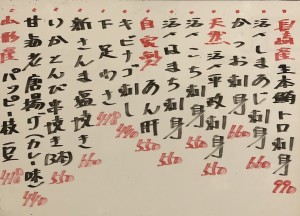 長崎産 生本鮪トロ刺身 990
活〆しまあじ刺身
かつお刺身 660
天然 活〆平政刺身
活〆はまち刺身 550
自家製 あん肝 550
キビナゴ刺し 440
下足わさ 418
新さんま塩焼き
いかとんび串焼き(3本) 550
甘海老唐揚げ(カレー味) 440
山形産 パッピー枝豆 418